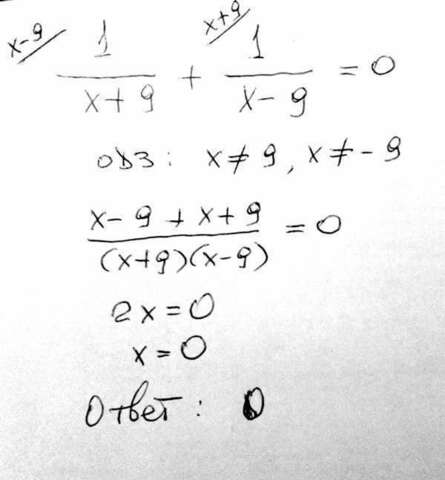 x-9/ 1/(x+9) + x+9/ 1/(x-9) = 0
ОДЗ: x ≠ 9, x ≠ -9
(x-9+x+9)/((x+9)(x-9)) = 0
2x = 0
x = 0
Ответ: 0